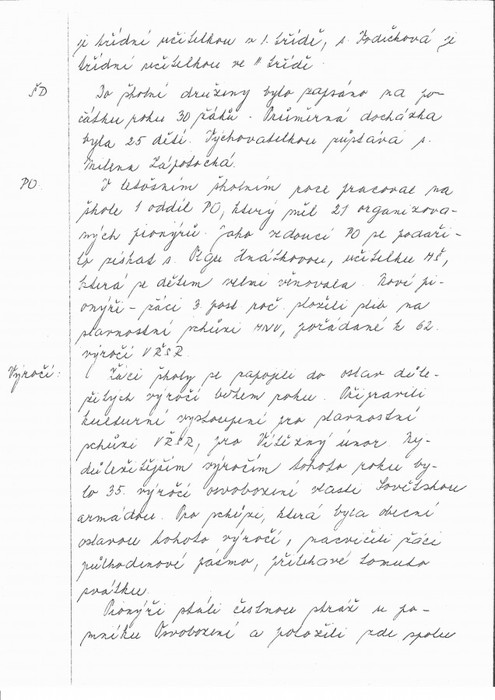 je třídní učitelkou v 1. třídě, s. Vodičková je
třídní učitelkou ve II třídě.
ŠD
Do školní družiny bylo zapsáno na po-
čátku roku 30 žáků. Průměrná docházka
byla 25 dětí. Vychovatelkou zůstává s.
Milena Zápotocká.
PO.
V letošním školním roce pracoval na
škole 1 oddíl PO, který měl 21 organizova-
ných pionýrů. Jako vedoucí PO se podaři-
lo získat s. Olgu Hnátkovou, učitelku MŠ,
která se dětem velmi věnovala. Noví pi-
onýři - žáci 3. post. roč. složili slib na
slavnostní schůzi MNV, pořádané k 62.
výročí VŘSR.
Výročí:
Žáci školy se zapojili do oslav důle-
žitých výročí během roku. Připravili
kulturní vystoupení pro slavnostní
schůzi VŘSR, pro Vítězný únor. Nej-
důležitějším výročím tohoto roku by-
lo 35. výročí osvobození vlasti Sovětskou
armádou. Pro schůzi, která byla obecní
oslavou tohoto výročí, nacvičili žáci
půlhodinové pásmo, přiléhavé tomuto
svátku.
Pionýři stáli čestnou stráž u po-
mníku Osvobození a položili zde spolu